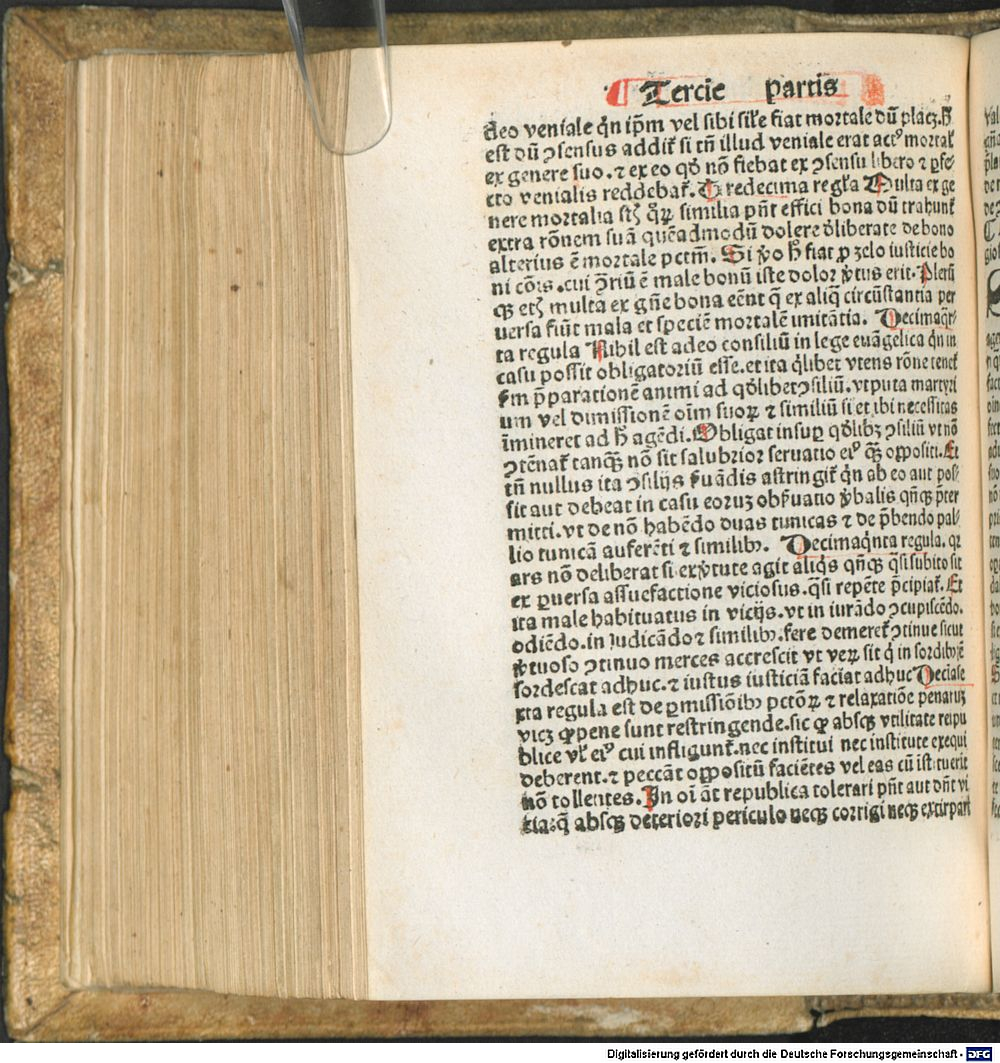 Tercie partis
deo veniale qn̄ ip̄m vel sibi sil'e fiat mortale dū placꝫ. H̄
est dū ꝯsensus addit̉ si tn̄ illud veniale erat actꝰ mortal'
ex genere suo. ⁊ ex eo qd̓ nō fiebat ex ꝯsensu libero ⁊ ꝑfe-
cto venialis reddebat̉. Tredecima reg̉la Multa ex ge
nere mortalia stꝫ q̄ꝝ similia pn̄t effici bona dū trahunt̉
extra rōnem suā quēadmodū dolere d̓liberate de bono
alterius ē mortale pctm̄. Si v̓o h̄ fiat ꝓ zelo iusticie bo
ni cōis. cui ꝯ̄riū ē male bonū iste dolor v̓tus erit. Pleru̅
qꝫ etꝫ multa ex gn̄e bona eēnt q̄ ex aliq̄ circūstantia per
uersa fiūt mala et speciē mortalē imitātia. Decimaq̄r-
ta regula Nihil est adeo consiliū in lege euāgelica qn̄ in
casu possit obligatoriū esse. et ita q̓libet vtens rōne tenet̉
ẜm p̄parationē animi ad qd̓libet ꝯsiliū. vtputa martyri
um vel dimissionē oīm suoꝝ ⁊ similiū si et ibi necessitas
īmineret ad h̄ agēdi. Obligat insuꝑ qd̓libꝫ ꝯsiliū vt nō
ꝯtēnat̉ tanqꝫ̄ nō sit salubrior seruatio eiꝰ qꝫ̄ oꝓpositi. Et
tn̄ nullus ita ꝯsilijs ẜuādis astringit̉ qn̄ ab eo aut pos-
sit aut debeat in casu eoruꝫ obẜuatio v̓balis qn̄qꝫ p̄ter
mitti. vt de nō habēdo duas tunicas ⁊ de p̄bendo pal-
lio tunicā auferēti ⁊ similibꝰ. Decimaq̄nta regula. qꝛ
ars nō deliberat si ex v̓tute agit aliq̓s qn̄qꝫ q̄si subito sit
ex ꝑuersa assuefactione viciosus. q̄si repēte p̄cipiat̉. Et
ita male habituatus in vicijs. vt in iurādo ꝯcupiscēdo.
odiēdo. in iudicādo ⁊ similibꝰ. fere demeret̉ ꝯtinue sicut
v̓tuoso ꝯtinuo merces accrescit vt veꝝ sit q̓ in sordibꝰ ē
sordescat adhuc. ⁊ iustus iusticiā faciat adhuc Deciāse
xta regula est de ꝑmissiōibꝰ pctōꝝ ⁊ relaxatiōe penaruꝫ
vicꝫ ꝙ pene sunt restringende. sic ꝙ absqꝫ vtilitate reipu
blice vl' eiꝰ cui infligunt̉. nec institui nec institute exequi
deberent. ⁊ peccāt oꝓpositū faciētes vel eas cū istituerit
nō tollentes. In oī āt republica tolerari pn̄t aut dn̄t vi
tia. q̄ absqꝫ deteriori periculo neqꝫ corrigi neqꝫ extirpari
Digitalisierung gefördert durch die Deutsche Forschungsgemeinschaft - DFG